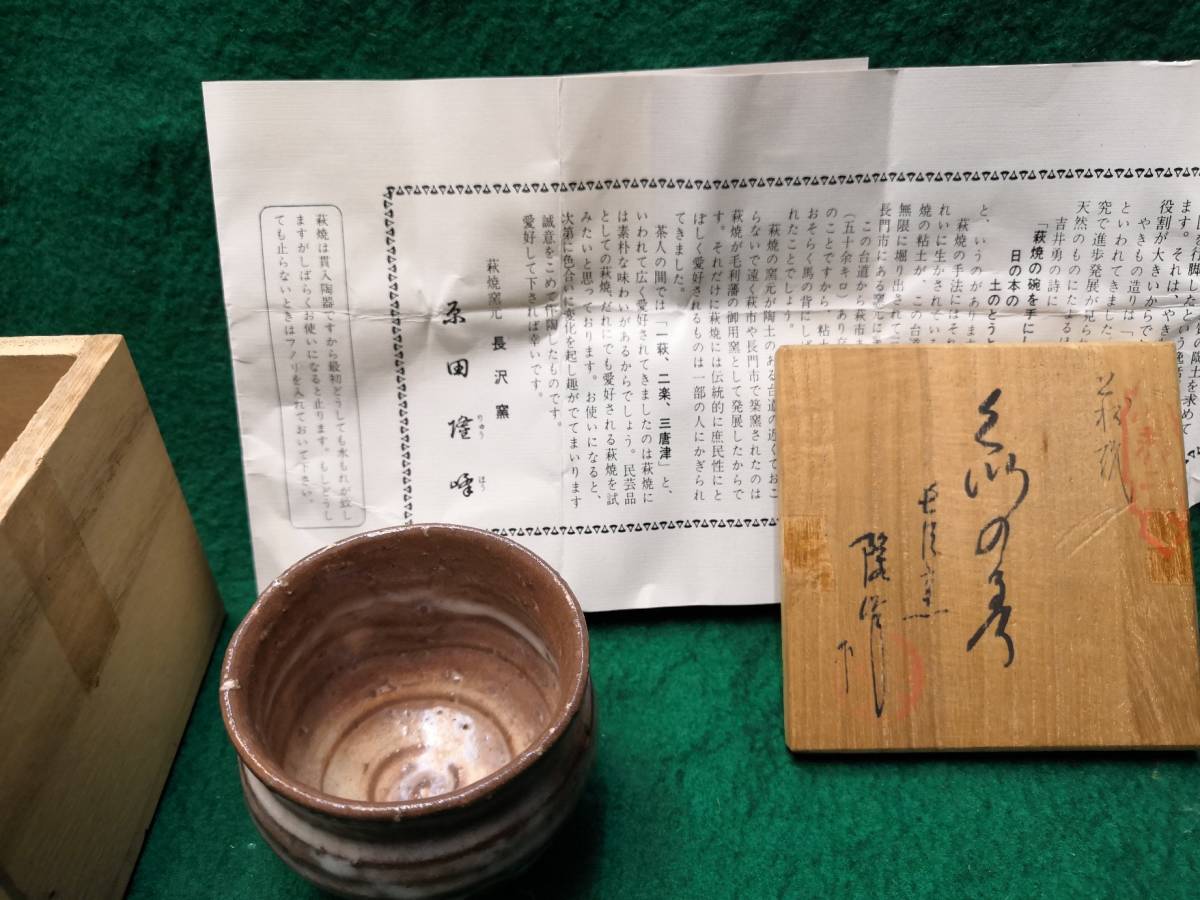 ます。それは、やきも
役割が大きいからで
やきもの造りは「
といわれてきました
究で進歩発展が見られ
天然のものにたよるほ
吉井勇の詩に
「萩焼の碗を手にし
日の本の
土のとうと
と、いうのがあります
萩焼の手法にはそれ
れいに生かされている
焼の粘土が、この台道
無限に堀り出されて
長門市にある窯元に
この台道から萩市ま
（五十余キロ）あり
のことですから、粘土
おそらく馬の背にしば
れたことでしょう。
萩焼の窯元が陶土のある台道の近くでおこ
らないで遠く萩市や長門市で築窯されたのは
萩焼が毛利藩の御用窯として発展したからで
す。それだけに萩焼には伝統的に庶民性にと
ぼしく愛好されるものは一部の人にかぎられ
てきました。
茶人の間では「一萩、二楽、三唐津」と、
いわれて広く愛好されてきましたのは萩焼に
は素朴な味わいがあるからでしょう。民芸品
としての萩焼、だれにでも愛好される萩焼を試
みたいと思っております。お使いになると、
次第に色合いに変化を起し趣がでてまいります
誠意をこめて作陶したものです。
愛好して下されば幸いです。
萩焼窯元 長沢窯
原田隆峰
りゅう ほう
萩焼は貫入陶器ですから最初どうしても水もれが致し
ますがしばらくお使いになると止ります。もしどうし
ても止らないときはフノリを入れておいて下さい。
萩焼
長沢窯
隆峰作